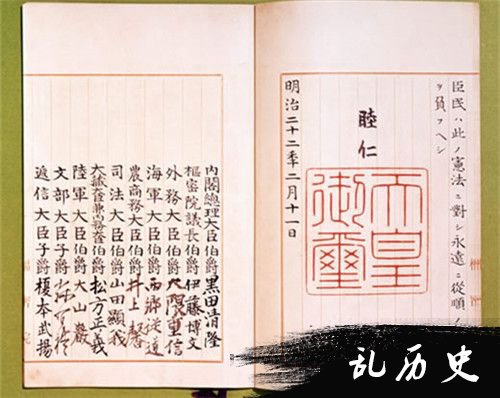 臣民ハ此ノ憲法ニ對シ永遠ニ從順ノ
ヲ負フヘシ
睦仁
天皇
御璽
明治二十二年二月十一日
内閣總理大臣伯爵黒田清隆
樞密院議長伯爵伊藤博文
外務大臣伯爵大隈重信
海軍大臣伯爵西鄉從道
農商務大臣伯爵井上馨
司法大臣伯爵山田顯義
大藏大臣兼內務大臣伯爵松方正義
陸軍大臣伯爵大山巖
文部大臣子爵
遞信大臣子爵榎本武揚
乱历史